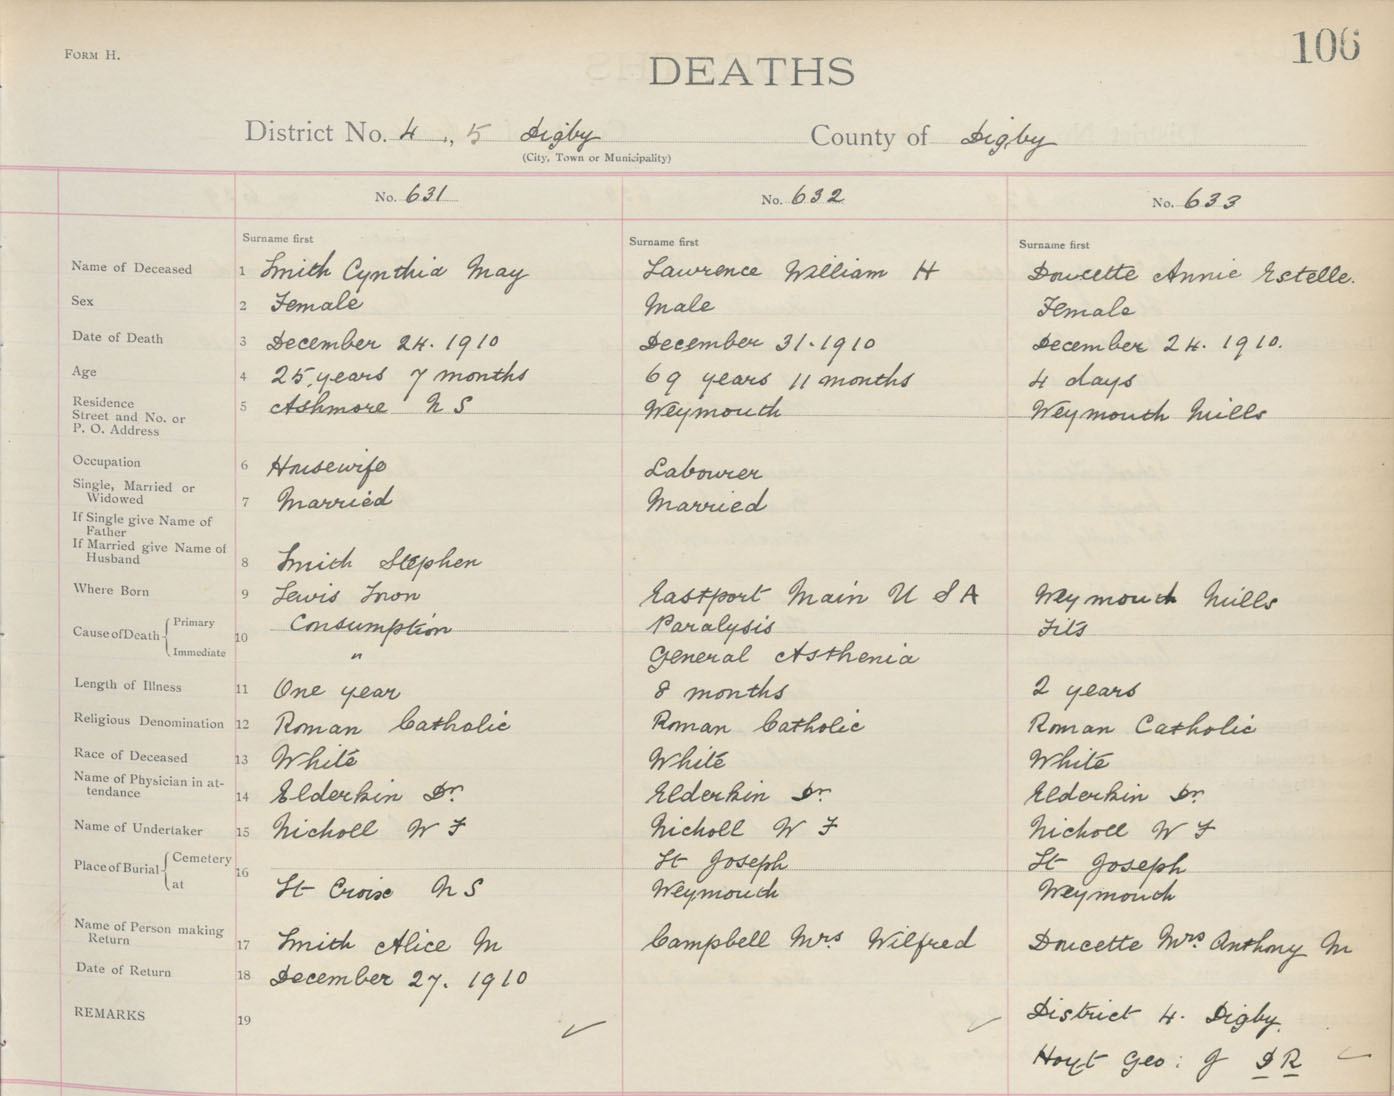 FORM H.
106
DEATHS
District No. 4, 5 Digby County of Digby
(City, Town or Municipality)
No. 631 No. 632 No. 633
Surname first Surname first Surname first
Name of Deceased 1 Smith Cynthia May Lawrence William H Doucette Annie Estelle.
Sex 2 Female Male Female
Date of Death 3 December 24. 1910 December 31. 1910 December 24. 1910.
Age 4 25 years 7 months 69 years 11 months 4 days
Residence
Street and No. or 5 Ashmore N S Weymouth Weymouth Mills
P. O. Address
Occupation 6 Housewife Labourer
Single, Married or
Widowed 7 Married Married
If Single give Name of
Father
If Married give Name of
Husband 8 Smith Stephen
Where Born 9 Lewis Eastport Main U S A Weymouth Mills
Cause of Death Primary 10 Consumption Paralysis Fits
Immediate " General Asthenia
Length of Illness 11 One year 8 months 2 years
Religious Denomination 12 Roman Catholic Roman Catholic Roman Catholic
Race of Deceased 13 White White White
Name of Physician in at-
tendance 14 Elderkin Dr. Elderkin Dr. Elderkin Dr.
Name of Undertaker 15 Nicholl W F Nicholl W F Nicholl W F
Place of Burial Cemetery 16 St Joseph St Joseph
at St Croix N S Weymouth Weymouth
Name of Person making
Return 17 Smith Alice M Campbell Mrs Wilfred Doucette Mrs. Anthony M
Date of Return 18 December 27. 1910
REMARKS 19 District 4. Digby.
Hoyt Geo: J D R